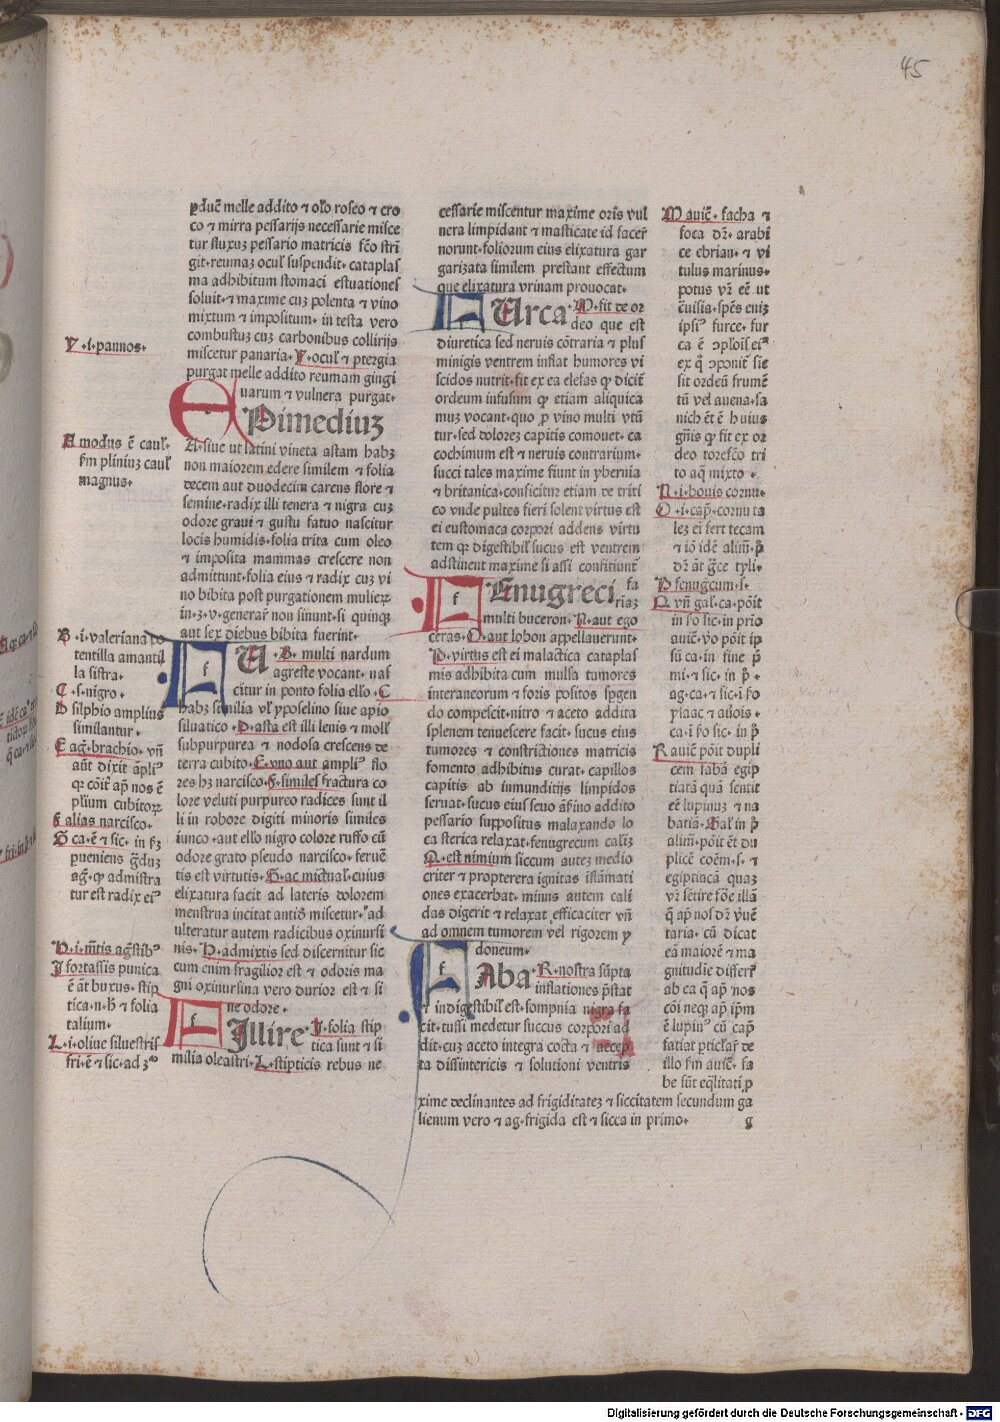 45
ꝓducͥt melle addito ⁊ oĺo roseo ⁊ cro
co ⁊ mirra pessarijs necessarie misce
tur fluxuȝ pessario matricis fc̄o strī
git·reumaȝ ocuĺ suspendit·cataplas
ma adhibitum stomaci estuationes
soluit·⁊ maxime cuȝ polenta ⁊ vino
mixtum ⁊ impositum·in testa vero
combustuȝ cuȝ carbonibus collirijs
miscetur panaria·Y·ocuĺ ⁊ ptergia
purgat melle addito reumam gingi
uarum ⁊ vulnera purgat·
EPimediuȝ
A·siue ut latini vineta astam habȝ
non maiorem edere similem ⁊ folia
decem aut duodecim carens flore ⁊
semine·radix illi tenera ⁊ nigra cuȝ
odore graui ⁊ gustu fatuo nascitur
locis humidis·folia trita cum oleo
⁊ imposita mammas crescere non
admittunt·folia eius ⁊ radix cuȝ vi
no bibita post purgationem mulieꝝ
in·ȝ·v·generař non sinunt·si quinqꝫ
aut sex diebus bibita fuerint·
FU·B·multi nardum
agreste vocant·nas
citur in ponto folia ello·C
habȝ similia vĺ yposelino siue apio
siluatico·D·asta est illi lenis ⁊ moll'
subpurpurea ⁊ nodosa crescens de
terra cubito·E·vno aut ampli' flo
res hȝ narcisco·F·similes fractura co
lore veluti purpureo radices sunt il
li in robore digiti minoris similes
iunco·aut ello nigro colore ruffo cū
odore grato pseudo narcisco·feruē
tis est virtutis·G·ac mictual'·cuius
elixatura facit ad lateris dolorem
menstrua incitat antið miscetur·ad
ulteratur autem radicibus oxinursi
nis·H·admixtis sed discernitur sic
cum enim fragilior est ⁊ odoris ma
gni oxinursina vero durior est ⁊ si
ne odore·
FIllire·I·folia stip
tica sunt ⁊ si
milia oleastri·L·stipticis rebus ne
cessarie miscentur maxime oris vul
nera limpidant ⁊ masticate id facer
norunt·foliorum eius elixatura gar
garizata similem prestant effectum
que elixatura vrinam prouocat·
FUrca·M·fit de or
deo que est
diuretica sed neruis cōtraria ⁊ plus
minigis ventrem inflat humores vi
scidos nutrit·fit ex ea elefas ꝙ dicit̄
ordeum infusum ꝙ etiam aliquica
muȝ vocant·quo ꝓ vino multi vtū
tur·sed dolorez capitis comouet·ca
cochimum est ⁊ neruis contrarium·
succi tales maxime fiunt in ybernia
⁊ britanica·conficitur etiam de triti
co vnde pultes fieri solent virtus est
ei eustomaca corpori addens virtu
tem qꝫ digestibil' sucus est ventrem
adstinent maxime si assi confitiunt̄
FEnugreci fa
riaȝ
multi buceron·N·aut ego
ceras·O·aut lobon appellauerunt·
P·virtus est ei malactica cataplas
mis adhibita cum mulsa tumores
interaneorum ⁊ foris positos spgen
do compescit·nitro ⁊ aceto addita
splenem tenuescere facit·sucus eius
tumores ⁊ constrictiones matricis
fomento adhibitus curat·capillos
capitis ab inmunditijs limpidos
seruat·sucus eius seuo āserino addito
pessario suppositus malaxando lo
ca sterica relaxat·fenugrecum caliȝ
Q·est nimium siccum autem medio
criter ⁊ propterera ignitas inflāmati
ones exacerbat·minus autem cali
das digerit ⁊ relaxat efficaciter vn̄
ad omnem tumorem vel rigorem y
doneum·
FAba·R·nostra sūpta
inflationes p̄stat
⁊ indigestibil' est·sompnia nigra fa
cit·tussi medetur succus corpori ad
dit·cuȝ aceto integra cocta ⁊ accep
ta dissintericis ⁊ solutioni ventris
Y·i·pannos·
A modus ē caul'·
fm plinium caul'
magnus·
B·i·valeriana
tentilla amantil
la sistra·
C·s·nigro·
D silphio amplius
similantur·
E ag·brachio·vn̄
aūt dixit āpli'
qꝫ cōit' ap̄ nos ē
plium cubitoꝝ
F alias narcisco·
G ca·ē ⁊ sic·in fȝ
pueniens
ag̃·ꝙ admistra
tur est radix ei'
H·i·m̄tis ag̃stib'
I fortassis punica
ē āt buxus·stip
tica·n·h̄ ⁊ folia
talium·
L·i·oliue siluestris
fri·ē ⁊ sic·ad 3'
M auic̄·facha ⁊
foca dr̄·arabi
ce ebrian·⁊ vi
tulus marinus·
potus vr̄ eē ut
c̄uisia·sp̄es eniȝ
ipsi' furce·fur
ca ē
ex q̄ ꝯponit̄ sic
sit ordeū frumē
tū vel auena·sa
nich ēt ē huius
gn̄is ꝙ fit ex or
deo torefc̄o tri
to aq̄ mixto·
N·i·bouis cornu·
O·i·cap̄·cornu ta
lez ei fert tecam
⁊ iō idē alim̄·p̄
dr̄ āt g̃ce tyli·
P fenug̃cum·s·
Q·vn̄ gal'·ca·pōit
in fo sic·in prio
auic̄·vo pōit ip
sū ca·in fine p̄
mi·⁊ sic·in p̄·
ag·ca·⁊ sic·i fo
ysaac ⁊
ca·i fo sic·in p̄
R auic̄ pōit dupli
cem fabā egip
tiacā quā sentit
eē lupinuȝ ⁊ na
batiā·Gal' in p̄
alim̄·pōit ēt du
plicē coēm·s·⁊
egiptiacā quaȝ
vr̄ sētire fōe illā
q̄ ap̄ nos dr̄
taria·cū dicat
eā maiorē ⁊ ma
gnitudie differf
ab ea q̄ ap̄ nos
cōi neqꝫ ap̄ ip̄m
ē lupin' cū cap̄
fatiat pticlař de
illo fm auic̄·fa
be sūt eqlitati ꝓ
xime declinantes ad frigiditateȝ ⁊ siccitatem secundum ga
lienum vero ⁊ ag·frigida est ⁊ sicca in primo·
g
Digitalisierung gefördert durch die Deutsche Forschungsgemeinschaft - DFG